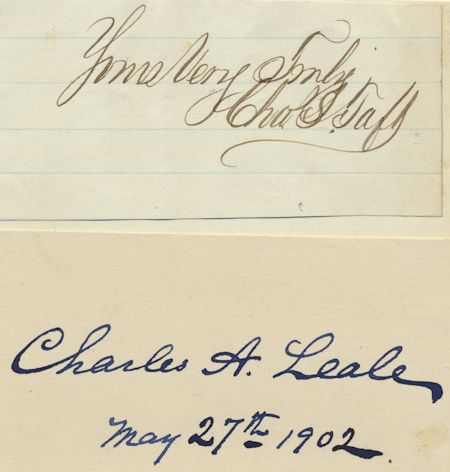 Yours Very Truly
Chas. S. Taft
Charles A. Leale
May 27th 1902.